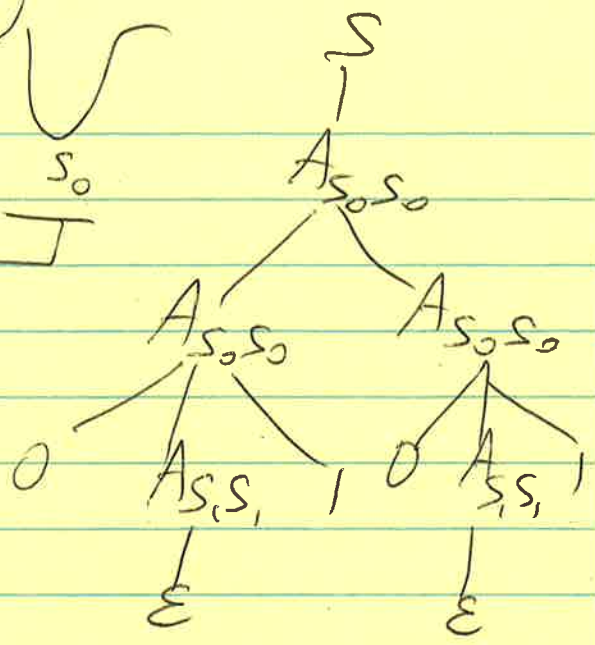 S
A S₀S₀
S₀
A S₀S₀ A S₀S₀
0 A S₁S₁ 1 0 A S₁S₁ 1
ε ε